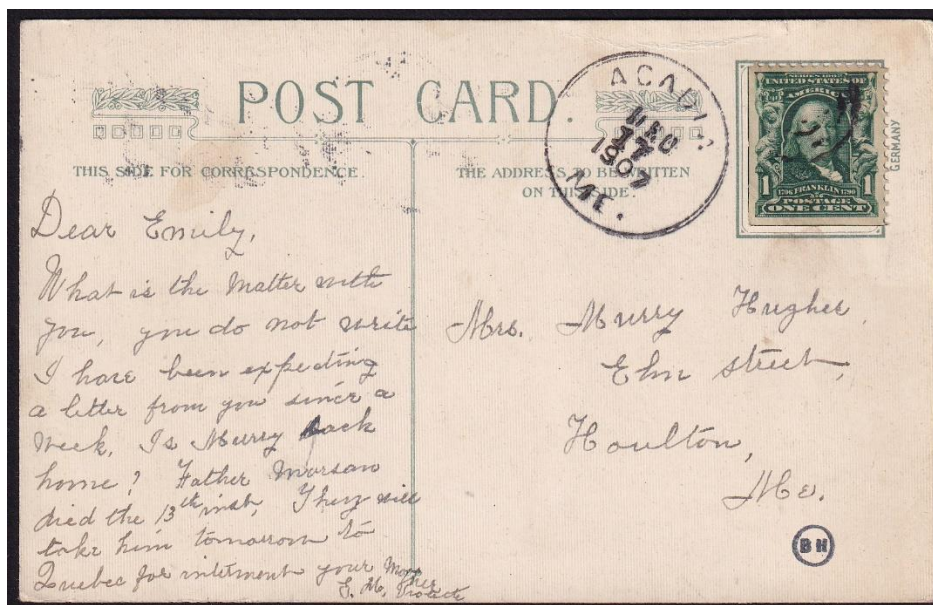 POST CARD.
THIS SIDE FOR CORRESPONDENCE.
THE ADDRESS TO BE WRITTEN
ON THIS SIDE.
ACADIA
17
1907
ME.
SERIES 1902
UNITED STATES OF
AMERICA
1 FRANKLIN 1
POSTAGE
ONE CENT
GERMANY
Dear Emily,
What is the Matter with
you, you do not write
I have been expecting
a letter from you since a
week, Is Murry back
home? Father Marsan
died the 13th inst, They will
take him tomorrow to
Quebec for interment your Mother
Mrs. Murry Hughes,
Elm Street,
Houlton,
Me.
BH